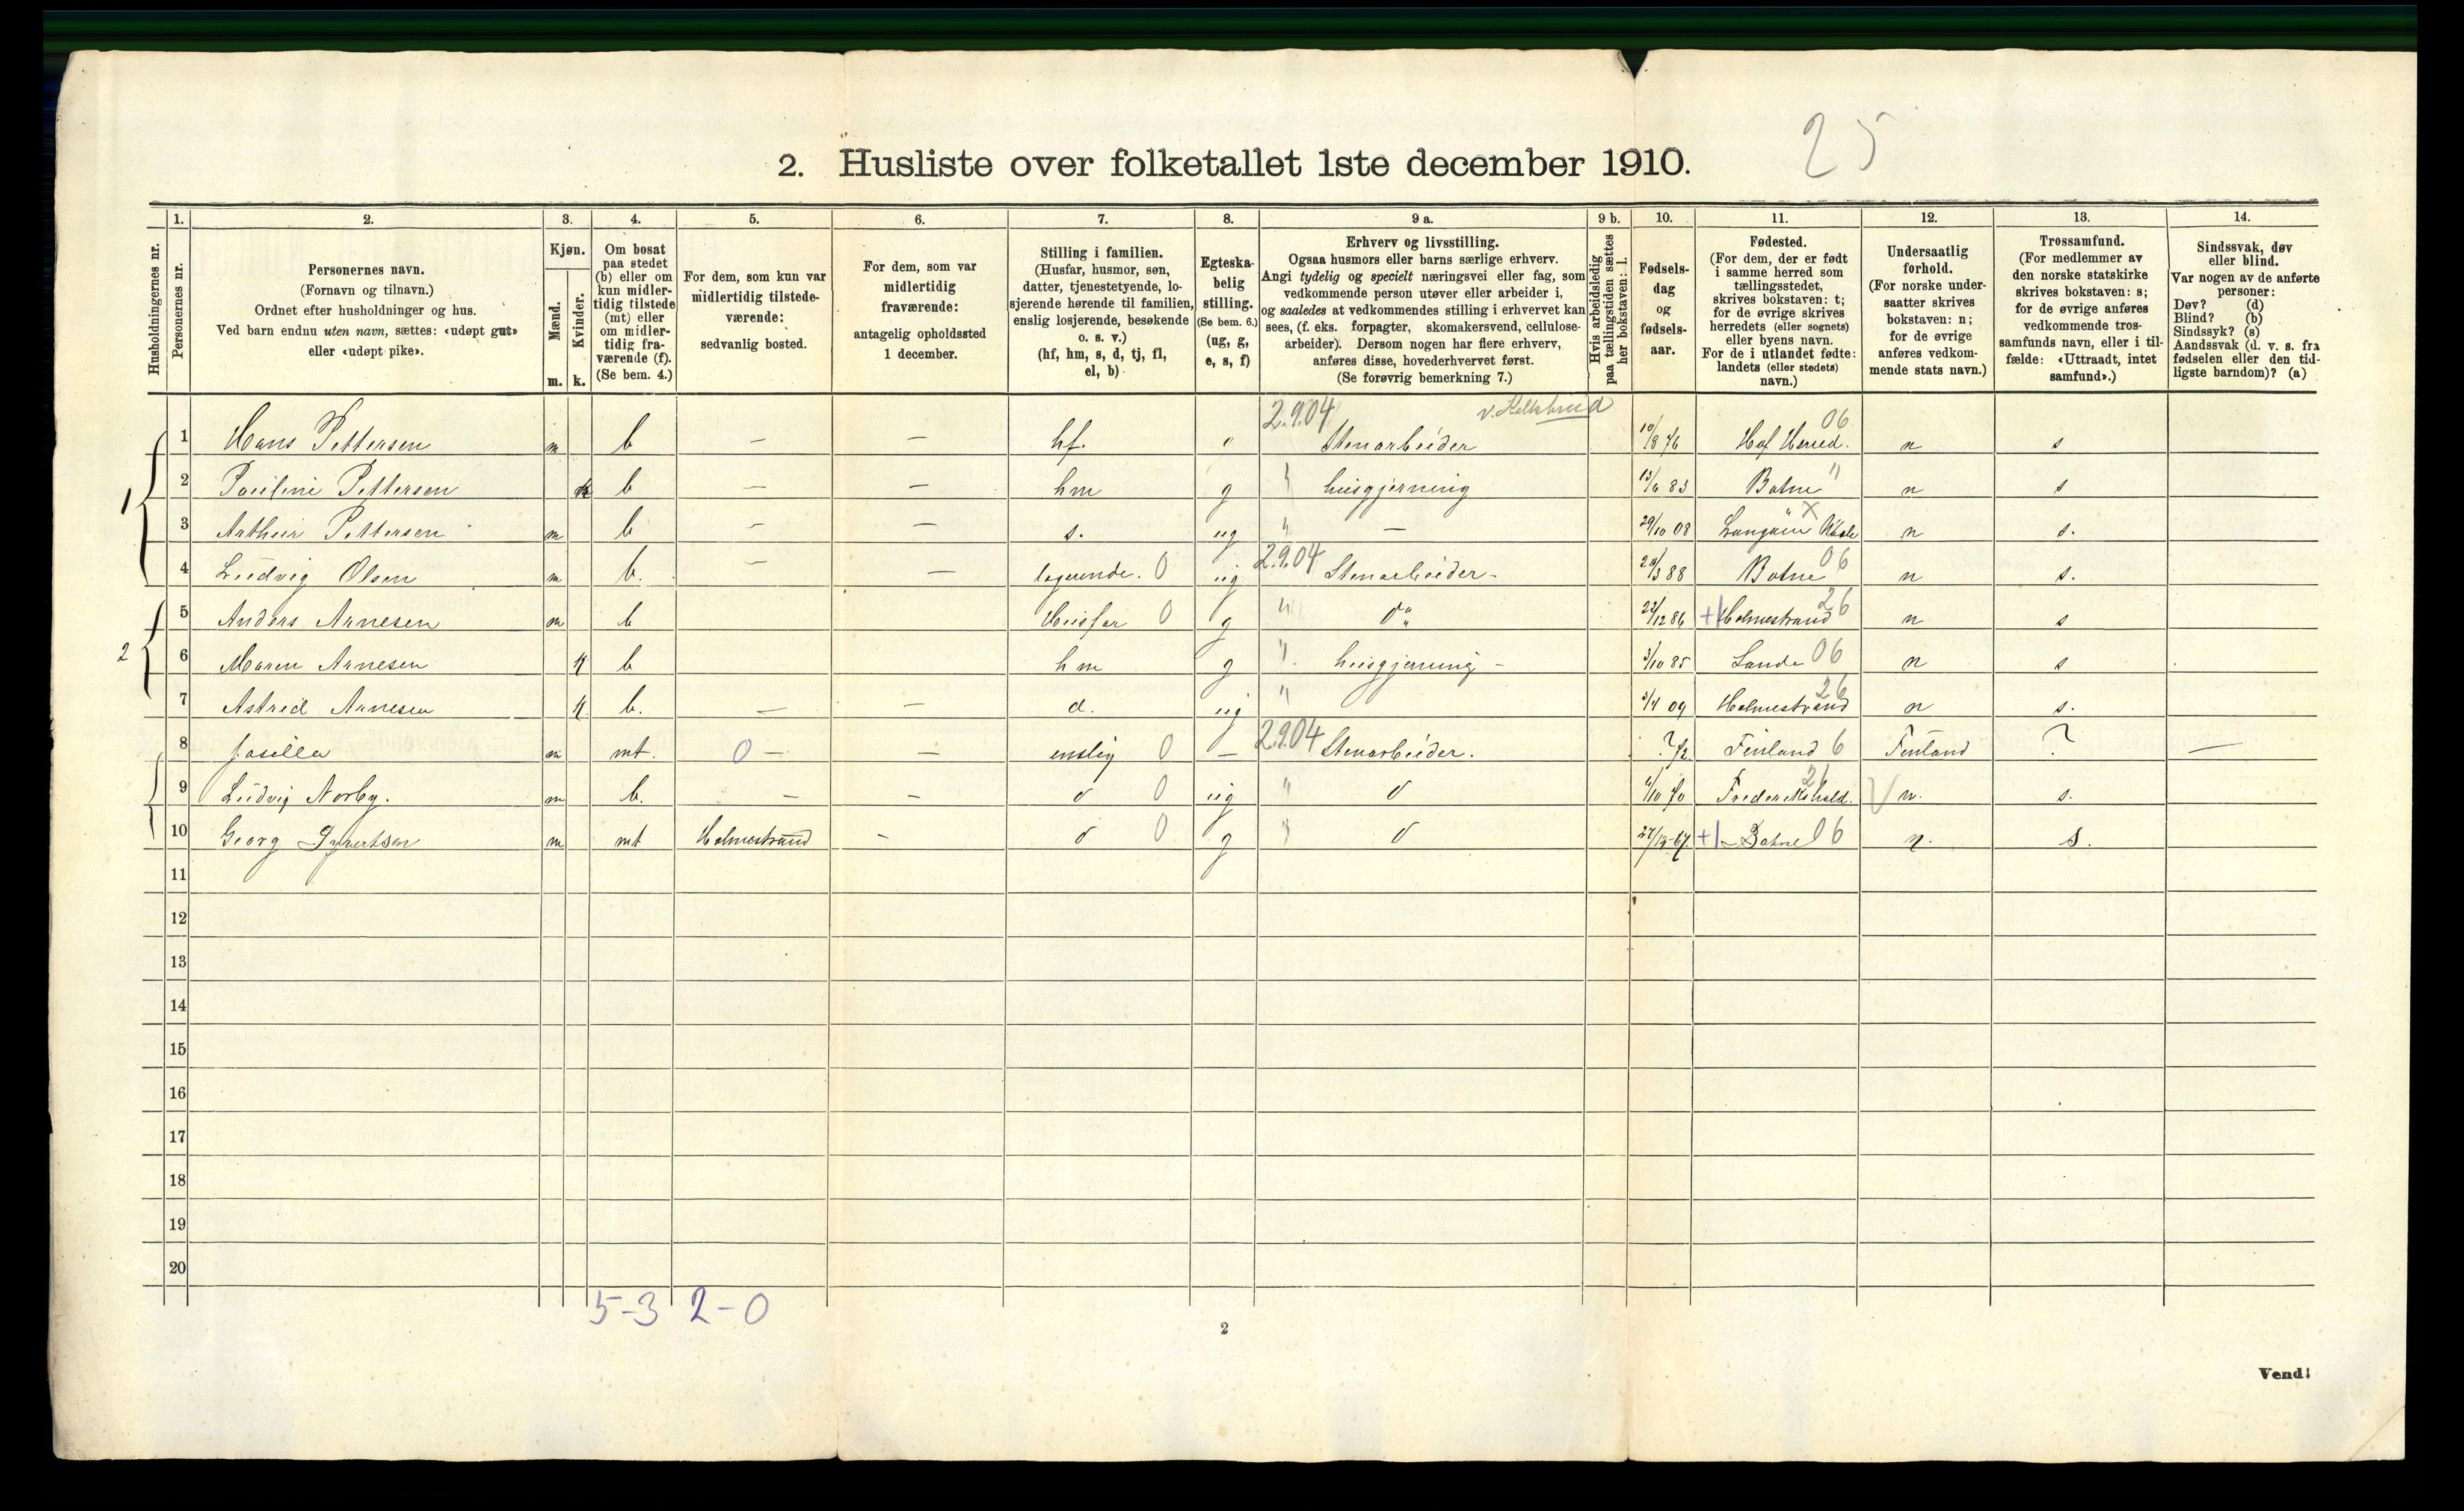 25
2. Husliste over folketallet 1ste december 1910.
1. 2. 3. 4. 5. 6. 7. 8. 9 a. 9 b. 10. 11. 12. 13. 14.
Husholdningernes nr.
Personernes nr.
Personernes navn.
(Fornavn og tilnavn.)
Ordnet efter husholdninger og hus.
Ved barn endnu uten navn, sættes: «udøpt gut»
eller «udøpt pike».
Kjøn.
Mænd.
Kvinder.
m. k.
Om bosat
paa stedet
(b) eller om
kun midler-
tidig tilstede
(mt) eller
om midler-
tidig fra-
værende (f).
(Se bem. 4.)
For dem, som kun var
midlertidig tilstede-
værende:
sedvanlig bosted.
For dem, som var
midlertidig
fraværende:
antagelig opholdssted
1 december.
Stilling i familien.
(Husfar, husmor, søn,
datter, tjenestetyende, lo-
sjerende hørende til familien,
enslig losjerende, besøkende
o. s. v.)
(hf, hm, s, d, tj, fl,
el, b)
Egteska-
belig
stilling.
(Se bem. 6.)
(ug, g,
e, s, f)
Erhverv og livsstilling.
Ogsaa husmors eller barns særlige erhverv.
Angi tydelig og specielt næringsvei eller fag, som
vedkommende person utøver eller arbeider i,
og saaledes at vedkommendes stilling i erhvervet kan
sees, (f. eks. forpagter, skomakersvend, cellulose-
arbeider). Dersom nogen har flere erhverv,
anføres disse, hovederhvervet først.
(Se forøvrig bemerkning 7.)
Hvis arbeidsledig
paa tællingstiden sættes
her bokstaven: l.
Fødsels-
dag
og
fødsels-
aar.
Fødested.
(For dem, der er født
i samme herred som
tællingsstedet,
skrives bokstaven: t;
for de øvrige skrives
herredets (eller sognets)
eller byens navn.
For de i utlandet fødte:
landets (eller stedets)
navn.)
Undersaatlig
forhold.
(For norske under-
saatter skrives
bokstaven: n;
for de øvrige
anføres vedkom-
mende stats navn.)
Trossamfund.
(For medlemmer av
den norske statskirke
skrives bokstaven: s;
for de øvrige anføres
vedkommende tros-
samfunds navn, eller i til-
fælde: «Uttraadt, intet
samfund».)
Sindssvak, døv
eller blind.
Var nogen av de anførte
personer:
Døv? (d)
Blind? (b)
Sindssyk? (s)
Aandssvak (d. v. s. fra
fødselen eller den tid-
ligste barndom)? (a)
2.9.04 06
1 Hans Pettersen m b — — hf. " Stenarbeider 10/8 76 Hof Herred. n s
1 2 Pauline Pettersen k b — — hm g " husgjerning 13/6 83 Botne " n s
3 Arthur Pettersen m b — — s. ug " — 29/10 08 n s.
4 Ludvig Olsen m b. — — logerende. 0 ug 2.9.04 Stenarbeider - 20/3 88 Botne 06 n s.
5 Anders Arnesen m b Husfar 0 g " do " 22/12 86 +| Holmestrand 26 n s
2 6 Maren Arnesen k b hm g " husgjerning - 3/10 85 Sande 06 n s
7 Astrid Arnesen k b. — — d. ug " 3/4 09 Holmestrand 26 n s.
8 m mt. 0 — — enslig 0 — 2.9.04 Stenarbeider. ? 72 Finland 6 Finland ? —
9 Ludvig Norby. m b. — — do 0 ug " do 6/10 70 Frederikshald. 21 n. s.
10 Georg Syvertsen m mt Holmestrand - do 0 g " do 27/12-67 +| Botne 06 n. s.
11
12
13
14
15
16
17
18
19
20
5-3 2-0
2
Vend!